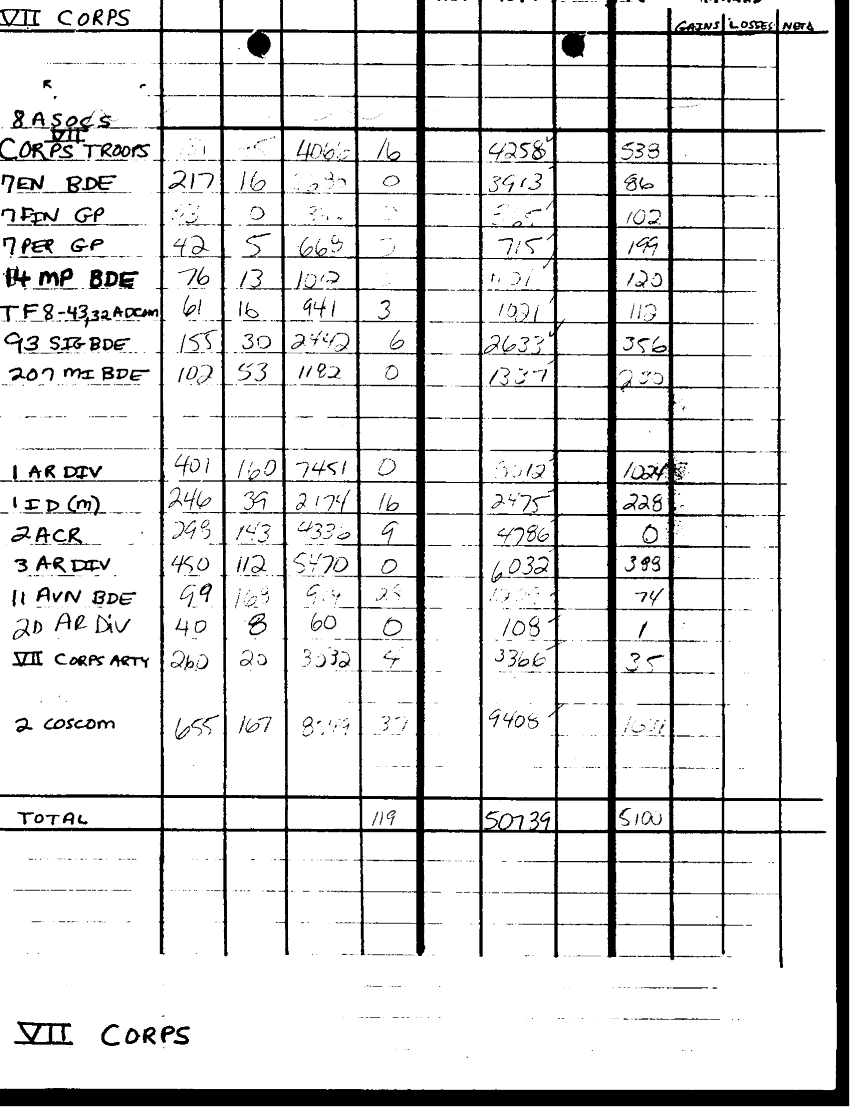 VII CORPS
GAINS LOSSES NOTA
8 ASOCS
VII
CORPS TROOPS 16 4258 538
7EN BDE 217 16 0 3913 86
7 FIN GP 0 102
7 PER GP 42 5 668 715 199
14 MP BDE 76 13 1012 120
TF 8-43, 32 ADCOM 61 16 941 3 1021 112
93 SIG BDE 155 30 2442 6 2633 356
207 MI BDE 102 53 1182 0 1337 230
1 AR DIV 401 160 7451 0 1024
1 ID (M) 246 39 2174 16 2475 228
2 ACR 298 143 4336 9 4786 0
3 AR DIV 450 112 5470 0 6032 399
11 AVN BDE 99 74
2D AR DIV 40 8 60 0 108 1
VII CORPS ARTY 260 20 3032 4 3366 35
2 COSCOM 655 167 9408
TOTAL 119 50739 5100
VII CORPS